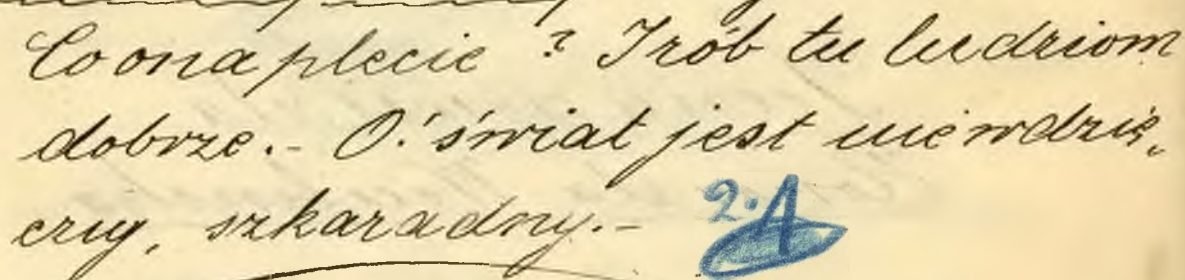 Co ona plecie? I rób tu ludziom
dobrze.- O! świat jest niewdzię-
czny, szkaradny.- 2.A